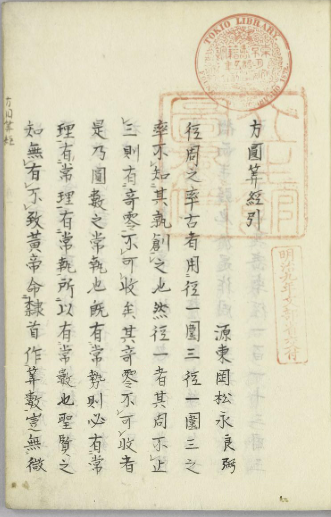 方圓算經引
源東岡松永良弼
徑周之率古者用徑一圍三徑一圍三之
率不知其孰創之也然徑一者其周不止
三則有奇零不可收矣其奇零不可收者
是乃圓數之常執也既有常勢則必有常
理有常理有常執所以有常數也聖賢之
知無有不致黃帝命隸首作筭數豈無微
TOKIO LIBRARY